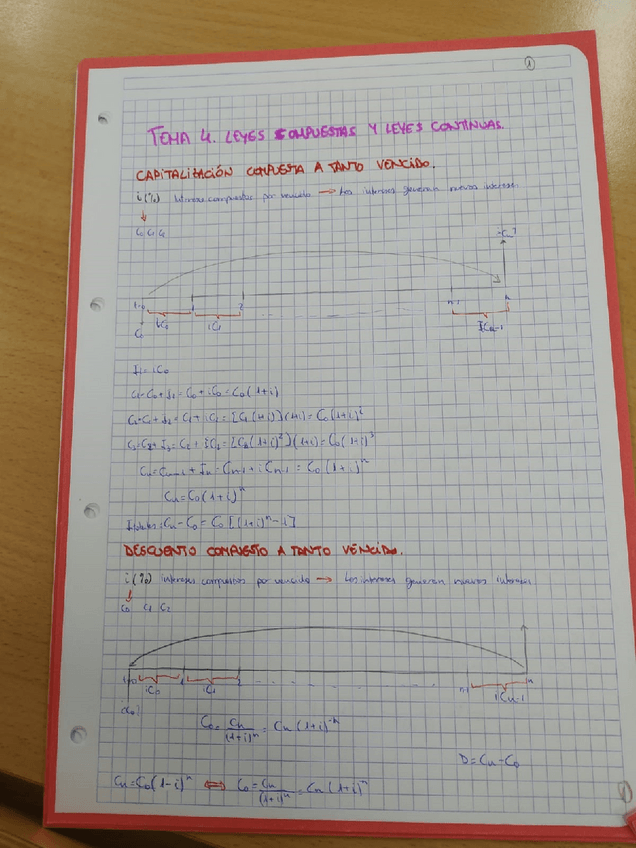 1
TEMA 4. LEYES COMPUESTAS Y LEYES CONTINUAS.
CAPITALIZACIÓN COMPUESTA A TANTO VENCIDO.
i(%) Intereses compuestos por vencido → Los intereses generan nuevos intereses
↓
C₀ C₁ C₂
t=0 1 2 n-1 n
C₀ iC₀ iC₁ iCn-1
I₁ = iC₀
C₁ = C₀ + I₁ = C₀ + iC₀ = C₀(1+i)
C₂ = C₁ + I₂ = C₁ + iC₁ = [C₀(1+i)](1+i) = C₀(1+i)²
C₃ = C₂ + I₃ = C₂ + iC₂ = [C₀(1+i)²](1+i) = C₀(1+i)³
Cn = Cn-1 + In = Cn-1 + iCn-1 = C₀(1+i)ⁿ
Cn = C₀(1+i)ⁿ
Itotales = Cn - C₀ = C₀[(1+i)ⁿ - 1]
DESCUENTO COMPUESTO A TANTO VENCIDO.
i(%) intereses compuestos por vencido → Los intereses generan nuevos intereses
↓
C₀ C₁ C₂
t=0 1 2 n-1 n
iC₀ iC₁ iCn-1
¿C₀?
C₀ = Cn/(1+i)ⁿ = Cn(1+i)⁻ⁿ
D = Cn - C₀
Cn = C₀(1-i)ⁿ ⇔ C₀ = Cn/(1+i)ⁿ = Cn(1+i)ⁿ